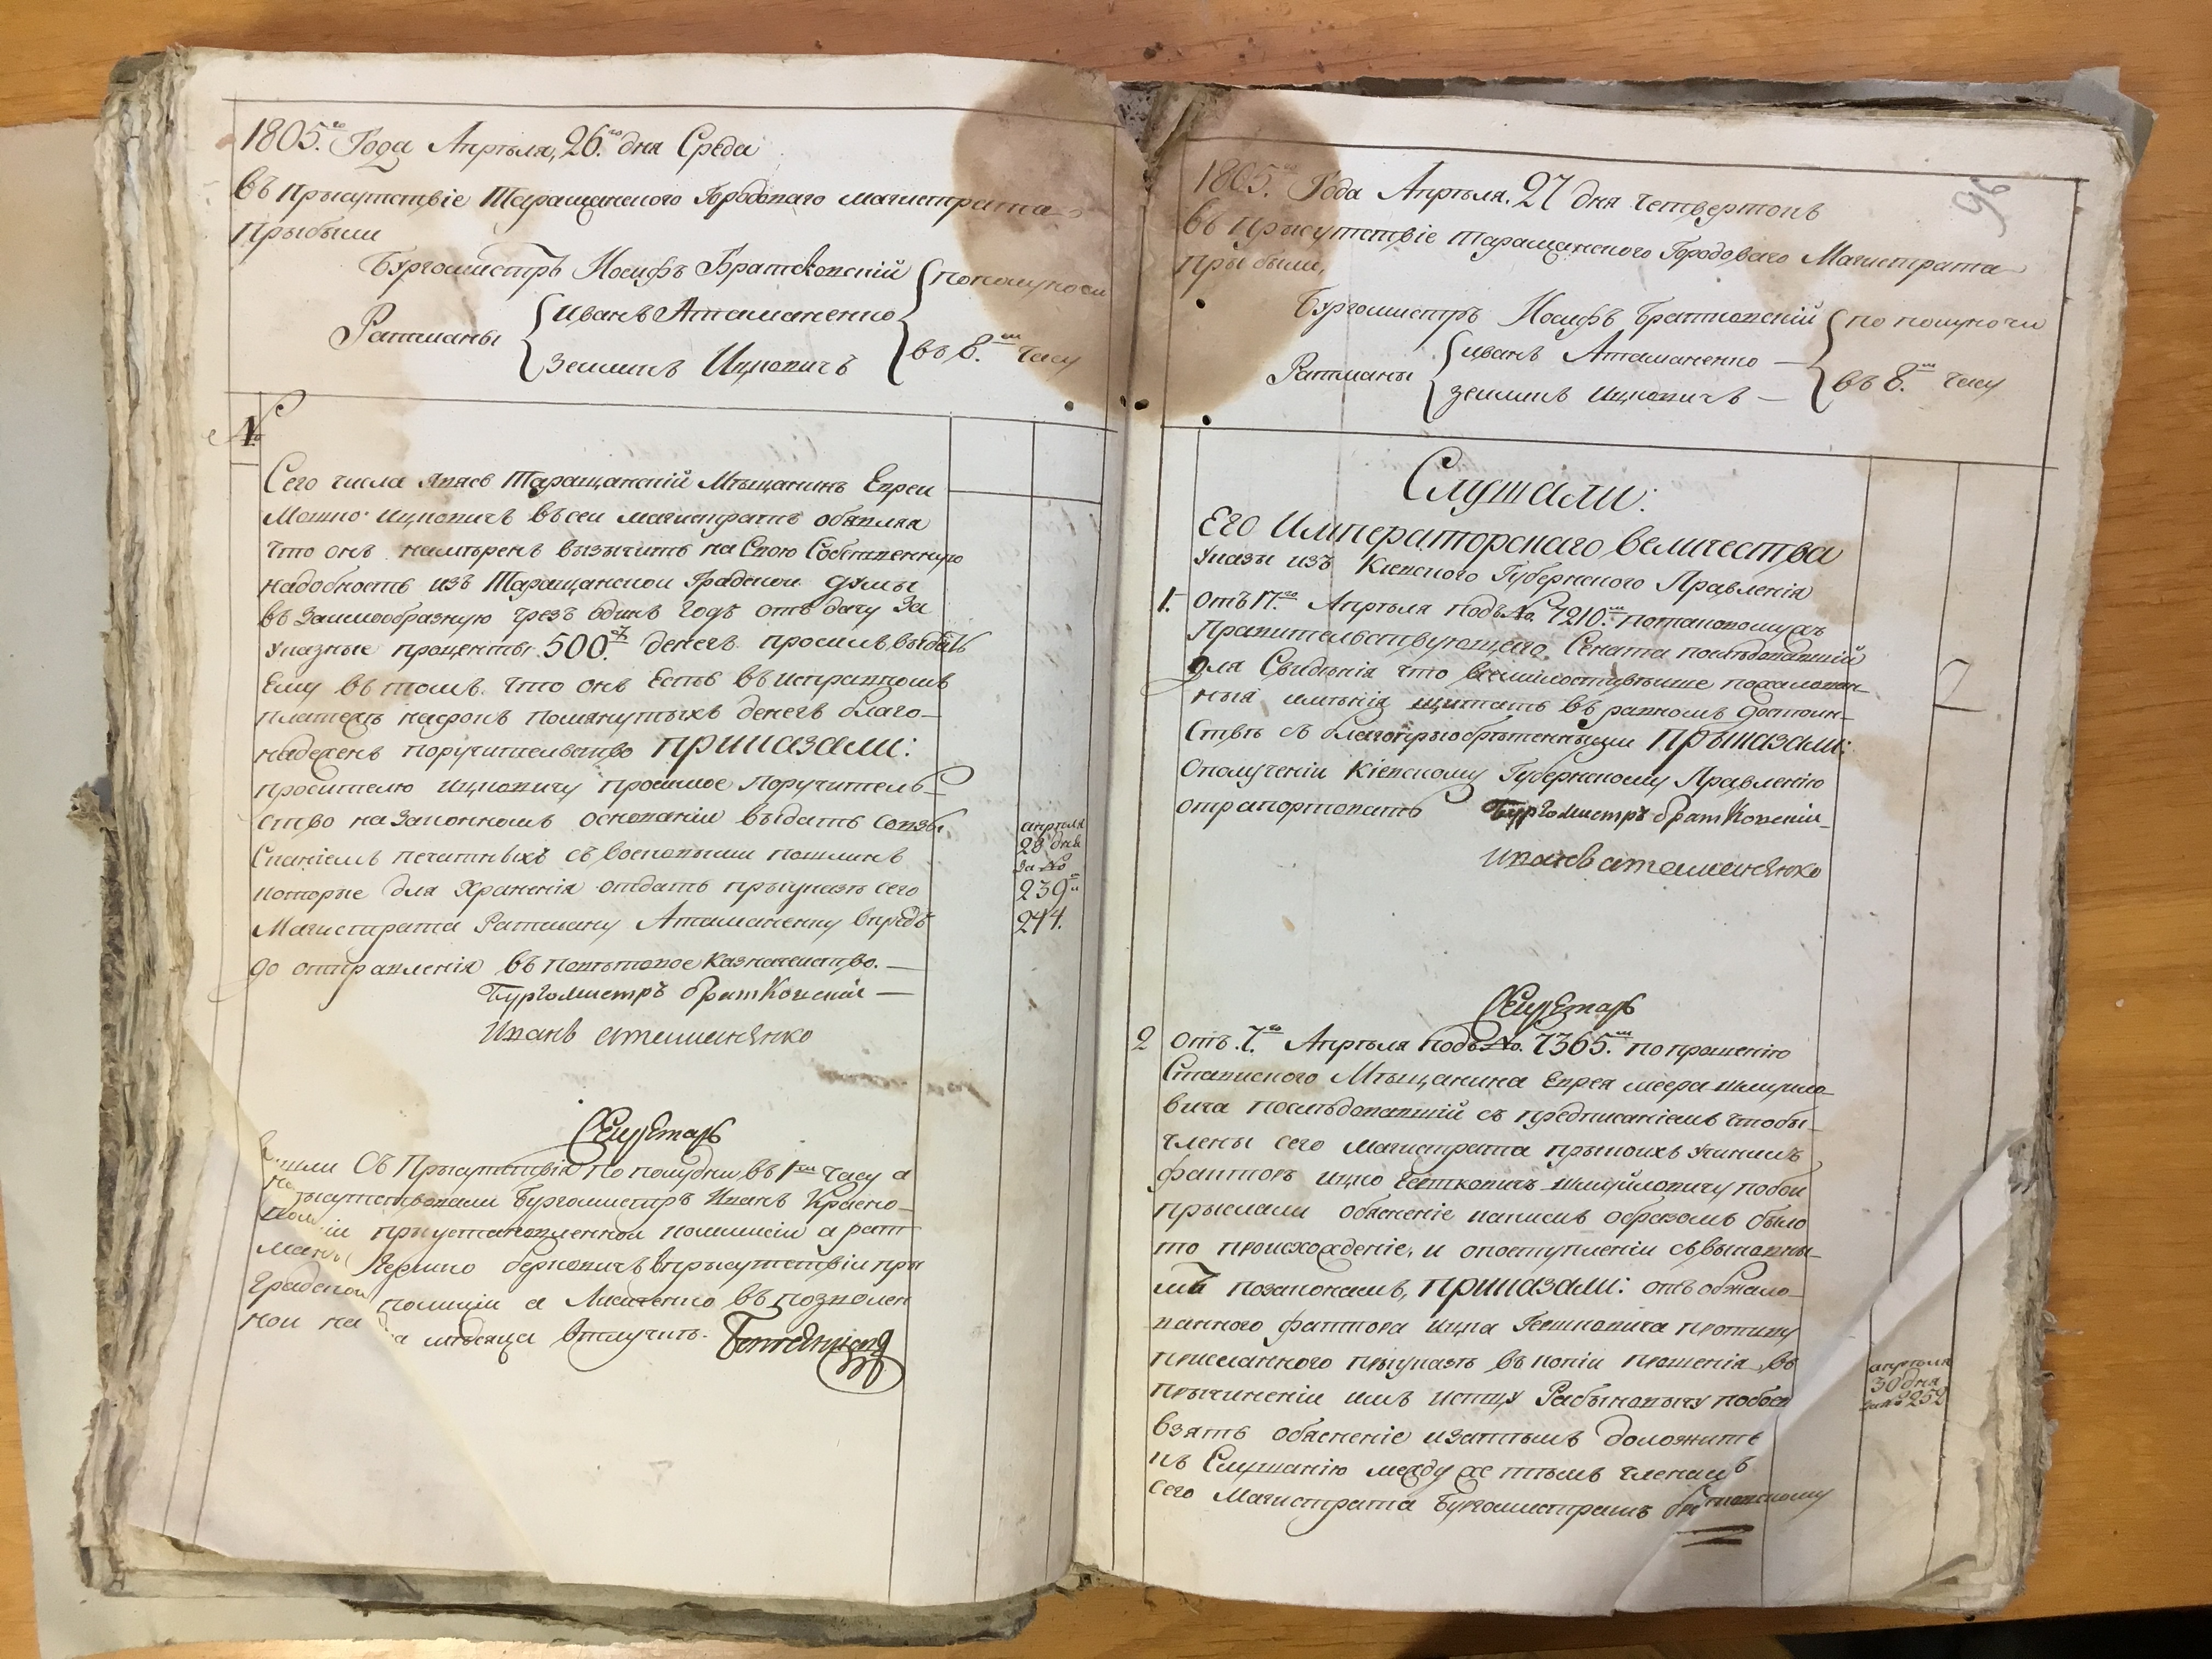 1805.го Года Апреля, 26.го дня Среда
въ прысутствіе Таращанского Городоваго магистрата
Прыбыли
Бургомистръ Иосифъ Братковскій
Ратманы
Иванъ Атаманенко
Зеиликъ Ицковичъ
по полуночи
въ 8.мъ часу
№
1
Сего числа явясь Таращанскій Мѣщанинъ Евреи
Мошко Ицковичъ въ сеи магистратъ обявляя
что онъ намѣренъ вызычить на Свою Собственную
надобность изъ Таращанскои Градскои думы
въ Заимообразную чрезъ одинъ годъ отъдачу За
указные проценты 500. денегъ просилъ выдать
Ему въ томъ что онъ Есть въ исправномъ
платежъ насрокъ помянутыхъ денегъ благо-
надеженъ поручительство приказали:
просителю Ицковичу просимое поручитель-
ство на Законномъ основаніи выдать Совзы
Сканіемъ печатныхъ съ восковыми пошлинъ
которые для Храненія отдать прыуказѣ сего
Магистрата Ратману Атаманенку впредь
до отправленія въ повѣтовое казначеиство. —
апрѣля
28 дня
за №
239
244.
Бургомистръ братковскій —
Иванъ атаманенко
Секретарь
шли Съ Прысутствія по полудни въ 1мъ часу а
прысутствовали Бургомистръ Иванъ Красно-
при установленной комисіи а рат
маны Берковичъ впрысутствіи при
Градскои полиціи а Лисиченко въ позволен
нои на два мѣсяца отлучкѣ.
96
1805.го Года Апрѣля. 27 дня четвертокъ
въ прысутствіе таращанского Городоваго Магистрата
прыбыли,
Бургомистръ Иосифъ братковскій
Ратманы
иванъ Атаманенко —
зеиликъ ицковичъ —
по полуночи
въ 8.мъ часу
Слушали:
Его Императорскаго величества
указы изъ Кіевского Губернского Правленія
1. отъ 17.го Апрѣля подъ №. 7210.мъ потаковому жъ
Правительствующего Сената послѣдовавшій
для Свѣденія что всемилостивѣише пожалован-
ныя имѣнія щитать въ равномъ достоин-
ствѣ съ благопрыобрѣтенными Прыказали:
ополученіи Кіевскому Губернскому Правленію
отрапортовать Бургомистръ братковскій
иванъ атаманенко
Секретарь
2 отъ 7.го Апрѣля подъ №. 7365.мъ по прошенію
Ставиского Мѣщанина Еврея меера шмуило-
вича послѣдовавшій съ предписаніемъ чтобы
члены сего Магистрата прыкоихъ учинилъ
факторъ ицко Гетковичъ шмуиловичу побои
прыслали обясненіе какимъ образомъ было
то происхожденіе, и опоступленіи съвиновны-
ми позаконамъ, приказали: отъ обжало-
ванного фактора ицка Гетковича противу
присланного прыуказѣ въ копіи прошенія, въ
прычиненіи имъ истцу Рабыновычу побои
взять обясненіе изатѣмъ доложить
къ Слушанію между же тѣмъ членамъ
сего Магистрата Бургомистрамъ братковскому
апрѣля
30 дня
за № 252